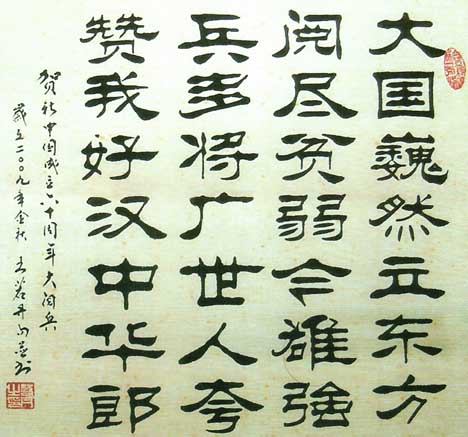 大国巍然立东方
阅尽贫弱今雄強
兵多将广世人夸
赞我好汉中华郎
贺新中国成立六十周年大阅兵
岁立二〇〇九年金秋 王若丹句并书